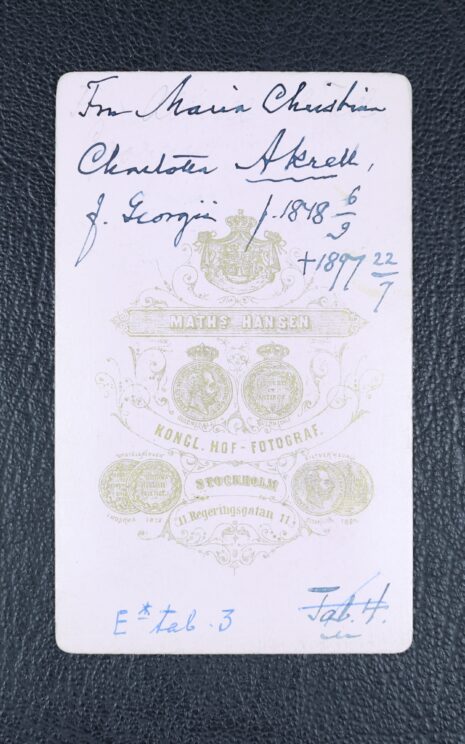 Fru Maria Christina
Charlotta Akrell,
f. Georgii f. 1848 6/9
+ 1897 22/7
MATHS HANSEN
KONGL. HOF-FOTOGRAF.
STOCKHOLM
11 Regeringsgatan 11
E* tab. 3
Tab. 4.